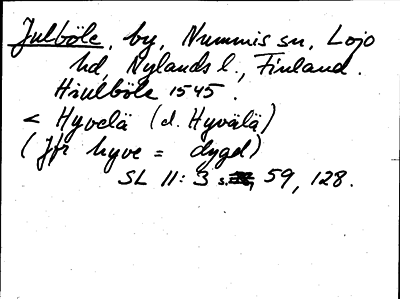 Julböle, by, Nummis sn, Lojo
hd, Nylands l., Finland.
Hiulböle 1545.
< Hyvelä (d. Hyvälä)
(Jfr hyve = dygd)
SL 11:3 s. 59, 128.